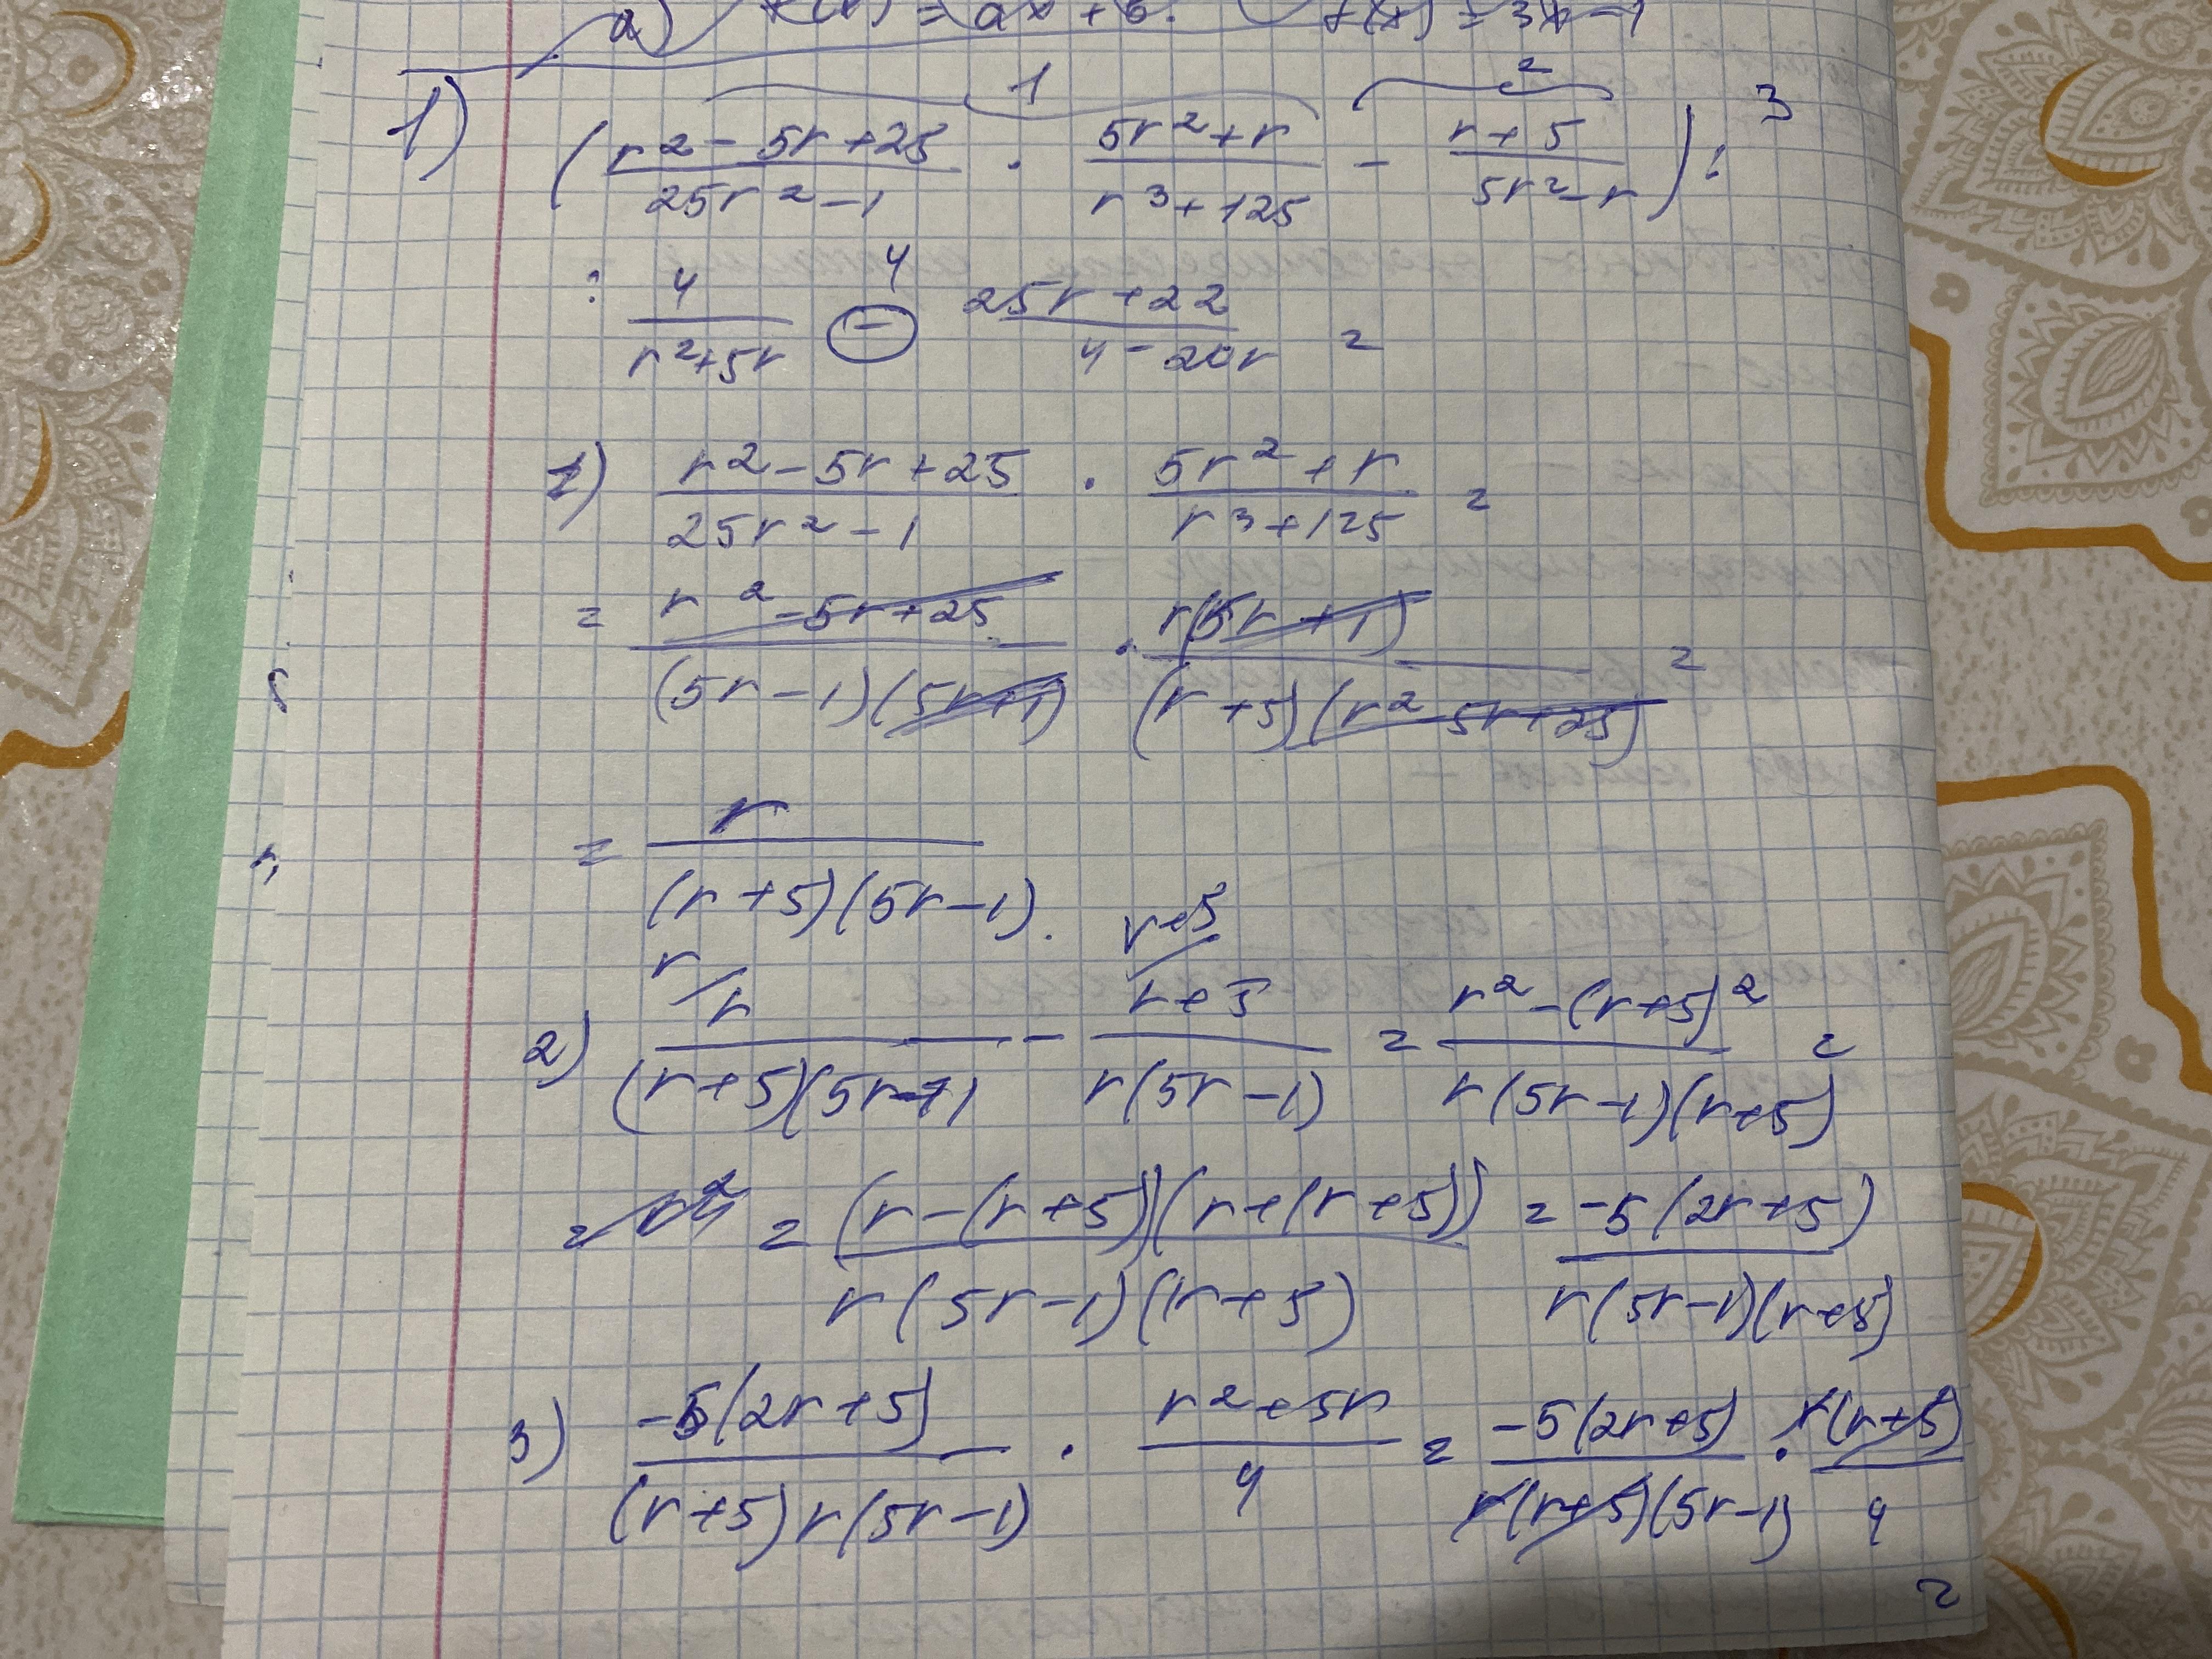 a) f(x) = ax + b. f(x) = 3x - 1
1) ( (r² - 5r + 25)/(25r² - 1) · (5r² + r)/(r³ + 125) - (r + 5)/(5r² - r) ) :
1 2 3
: 4/(r² + 5r) - (25r + 22)/(4 - 20r) =
4
1) (r² - 5r + 25)/(25r² - 1) · (5r² + r)/(r³ + 125) =
= (r² - 5r + 25)/((5r - 1)(5r + 1)) · r(5r + 1)/((r + 5)(r² - 5r + 25)) =
= r/((r + 5)(5r - 1)).
r r+5
2) r/((r + 5)(5r - 1) - (r + 5)/(r(5r - 1)) = (r² - (r + 5)²)/(r(5r - 1)(r + 5)) =
= = ((r - (r + 5))(r + (r + 5)))/(r(5r - 1)(r + 5)) = -5(2r + 5)/(r(5r - 1)(r + 5))
3) -5(2r + 5)/((r + 5)r(5r - 1)) · (r² + 5r)/4 = -5(2r + 5)/(r(r + 5)(5r - 1)) · r(r + 5)/4
=